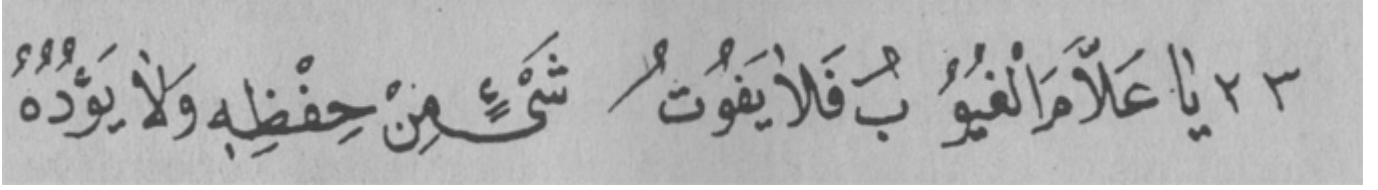 ٢٣ يٰا عَلاَّمَ الْغُيُوبُ فَلاٰ يَفُوتُ شَىْءٍ مِنْ حِفْظِهِ وَلاٰ يَؤُدُهُ